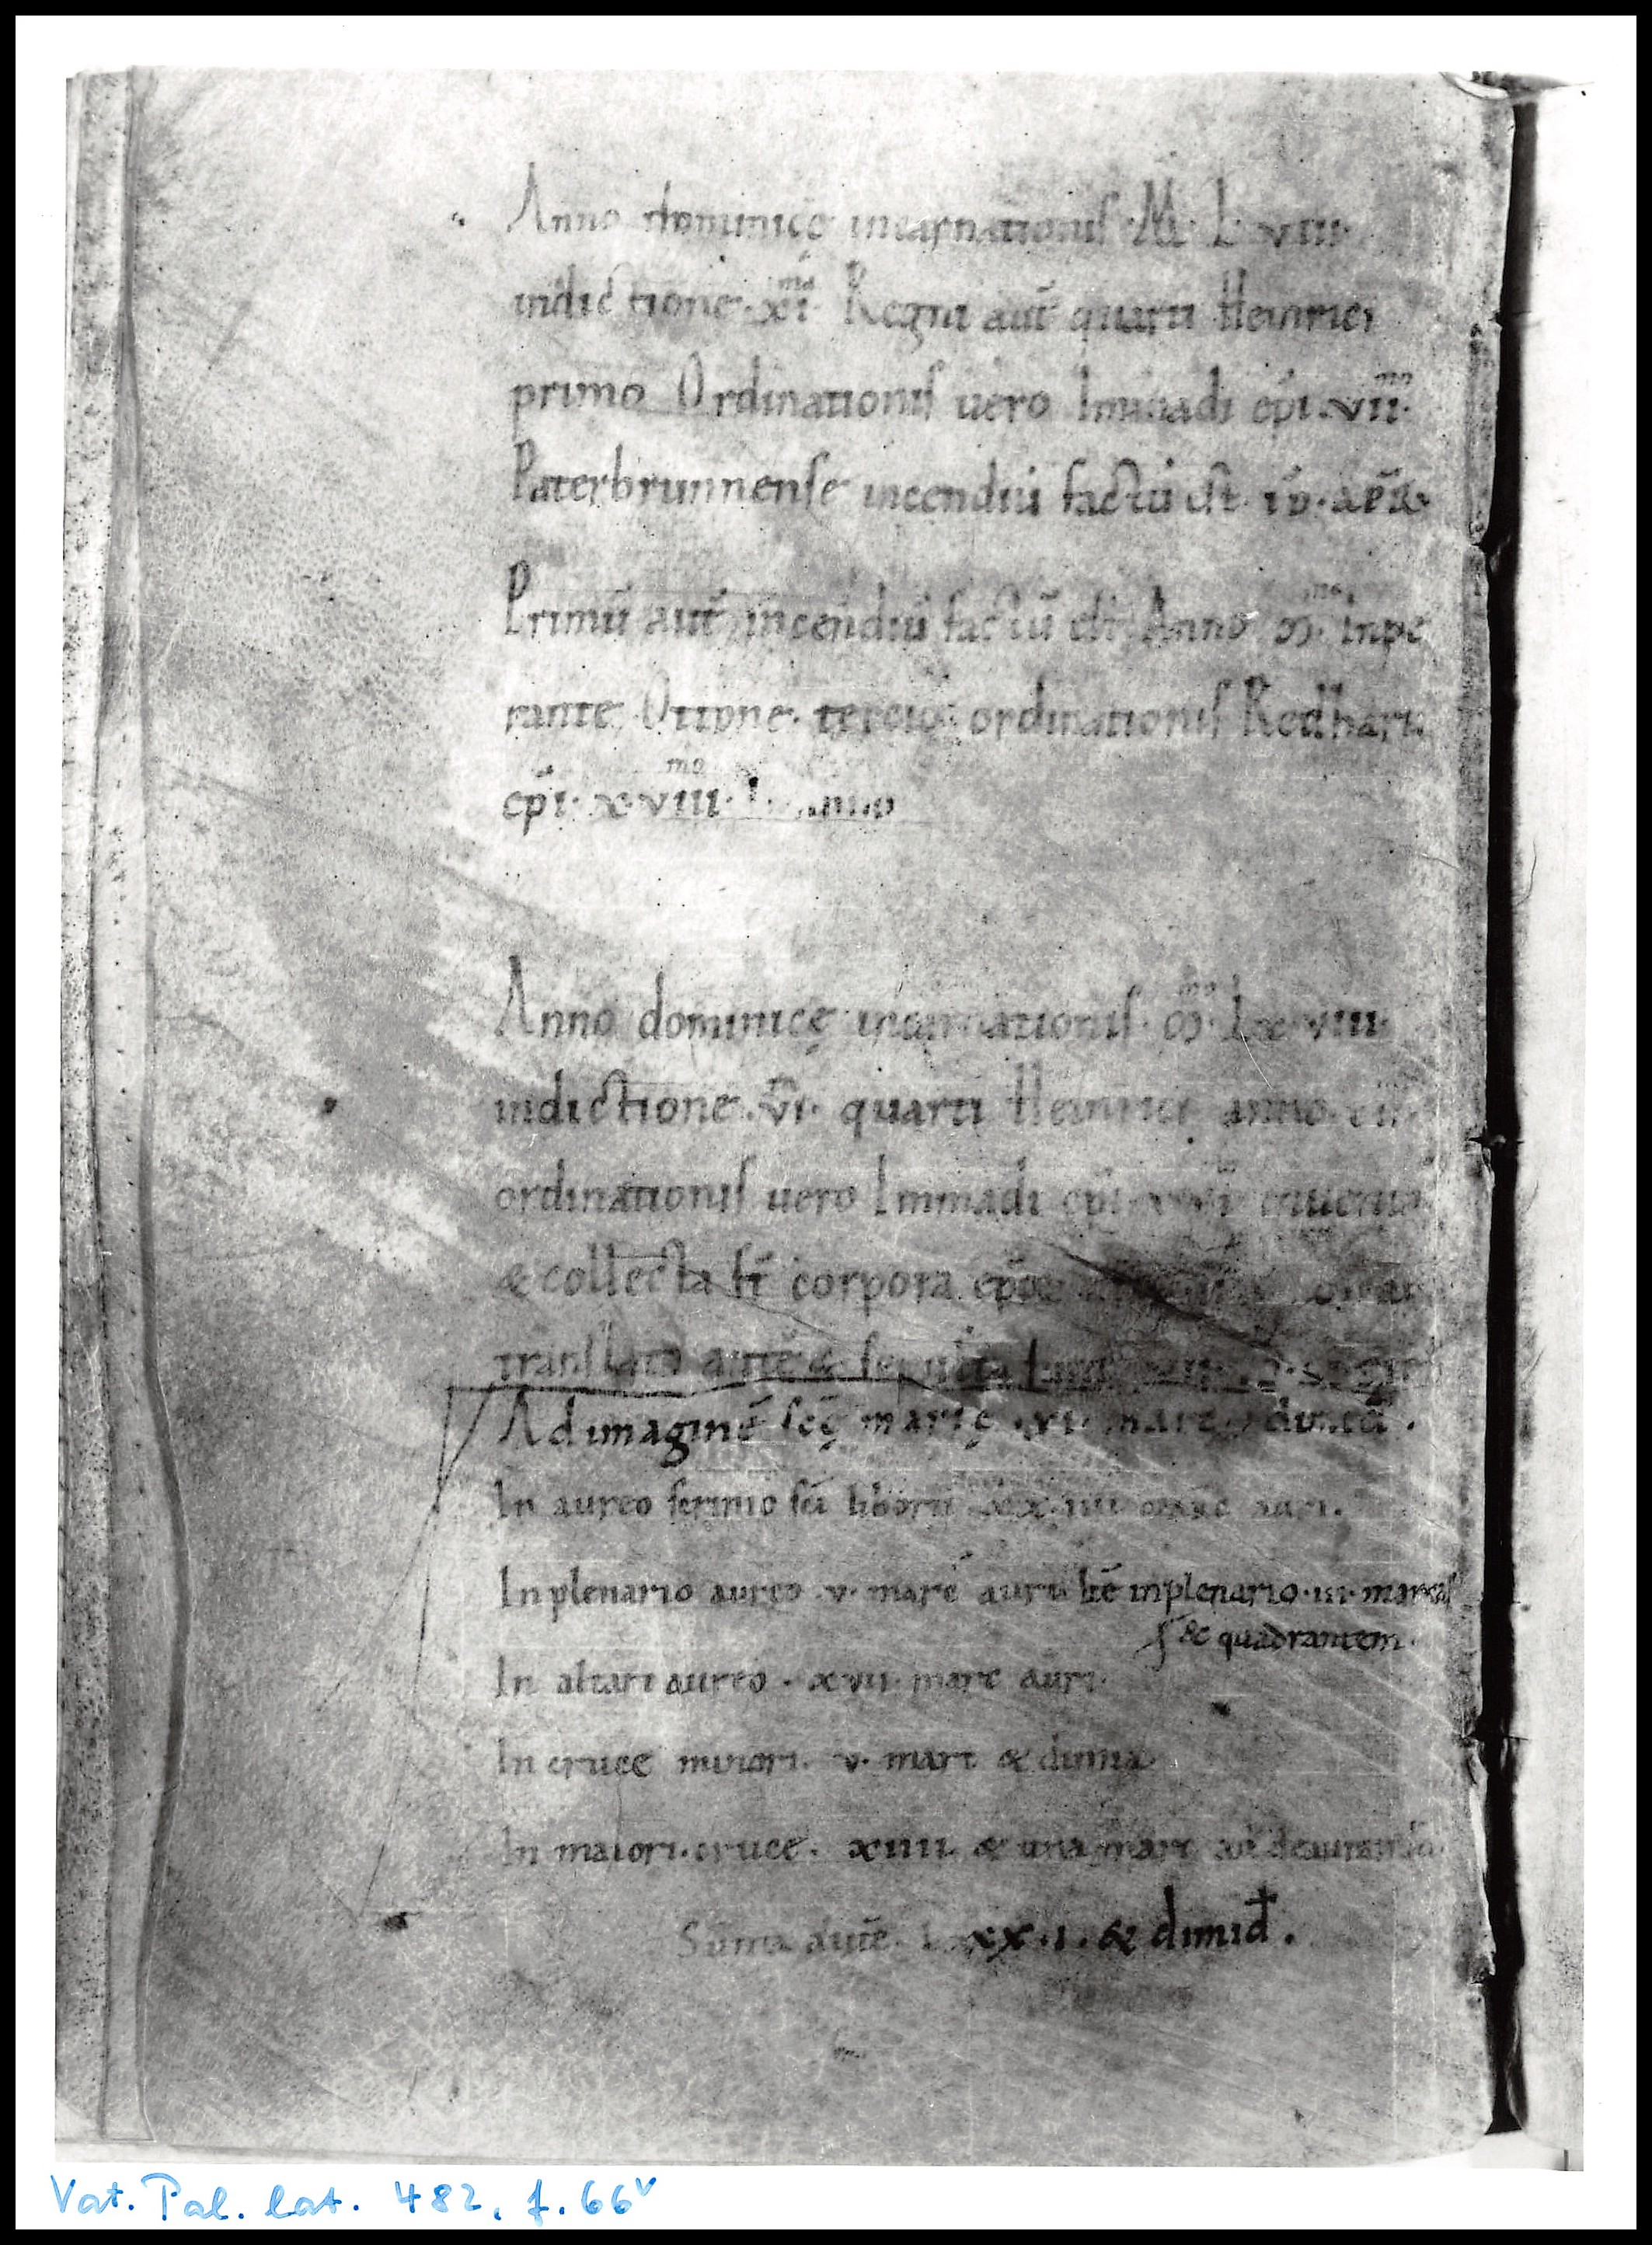 Anno dominicę incarnationiſ · M · L · viii ·
indictione · xi^ma · Regni aut̄ quarti Heinrici
primo Ordinationiſ uero Immadi ep̄i · vii^mo ·
Paterbrunnenſe incendiū factū eſt · id · apr̄ ·
Primū aut̄ incendiū factū eſt Anno ꝏ^mo · Inpe
rante Ottone · tercio · ordinationiſ Redharii
ep̄i · x · viii^mo · anno
Anno dominicę incarnationiſ · ꝏ^mo · Lx · viii ·
indictione · vi · quarti Heinrici anno
ordinationiſ uero Immadi ep̄i
& collecta st̄ corpora
tranſlata aut̄ & ſepulta
Ad imaginē sc̄ę marię · vi · marc
In aureo ſcrinio sc̄i lib̄orii xx · iiii auri ·
In plenario aureo · v · marc̄ auri hē in plenario · iii · marcaſ
& quadrantem ·
In altari aureo · xvii · marc̄ auri ·
In cruce minori · v · marc̄ & dimia
In maiori · cruce · xiiii · & una marc̄ ad deaurandā ·
Sūma aut̄ē · xx · i · & dimid̄ ·
Vat. Pal. lat. 482, f. 66v